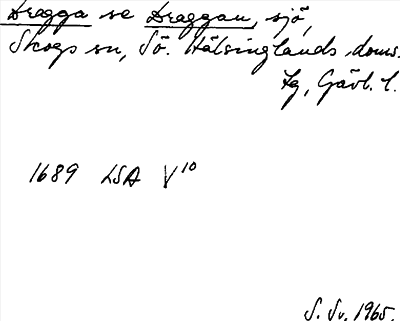 Dragga se Draggan, sjö,
Skogs sn, Sö. Hälsinglands doms.
tg, Gävl. l.
1689 LSA V 10
S. Sv. 1965.